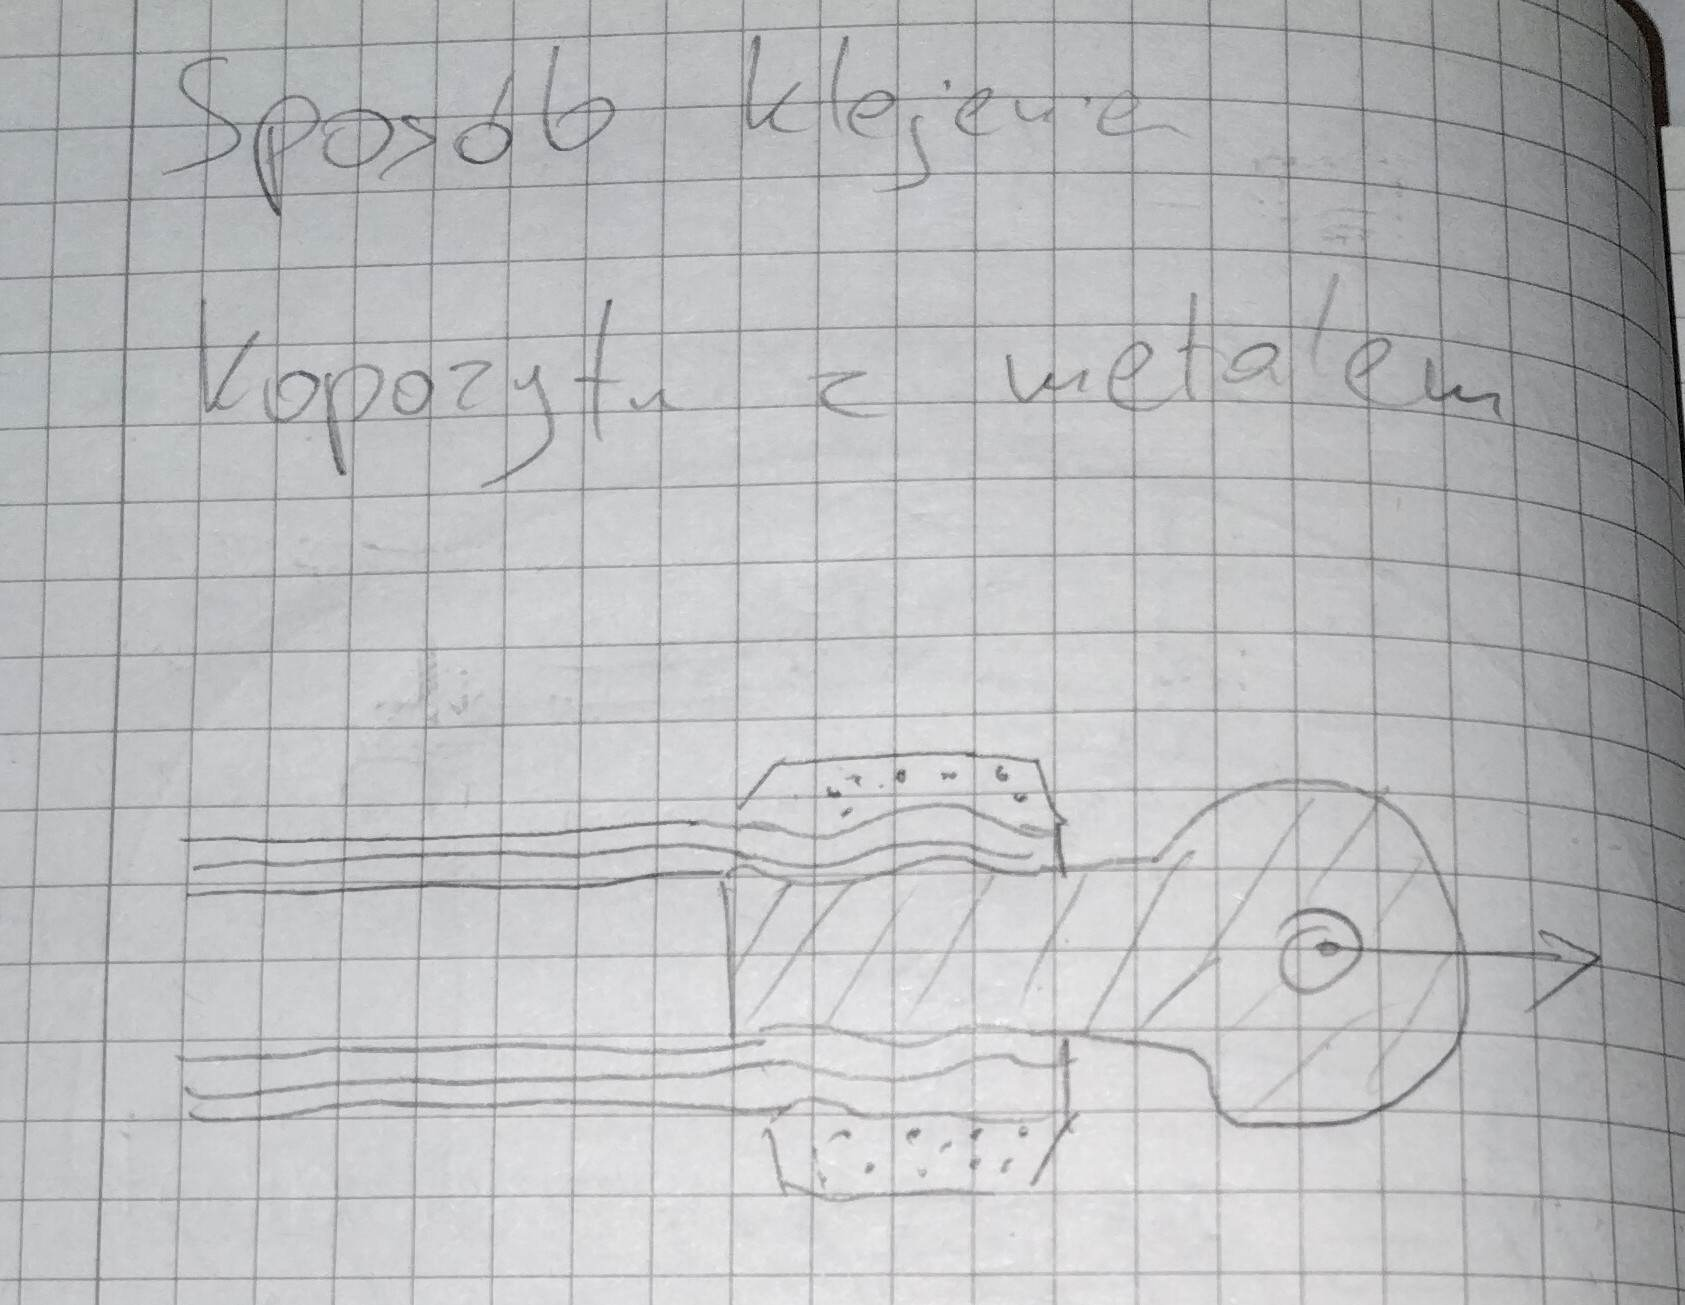 Sposób klejenie
Kopozytu z metalem